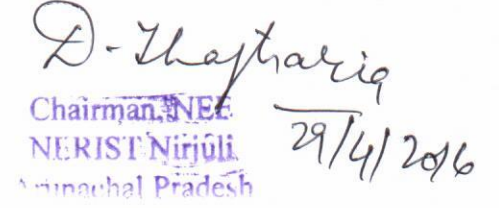 Chairman, NEE
NERIST Nirjuli
Arunachal Pradesh
29/4/2016